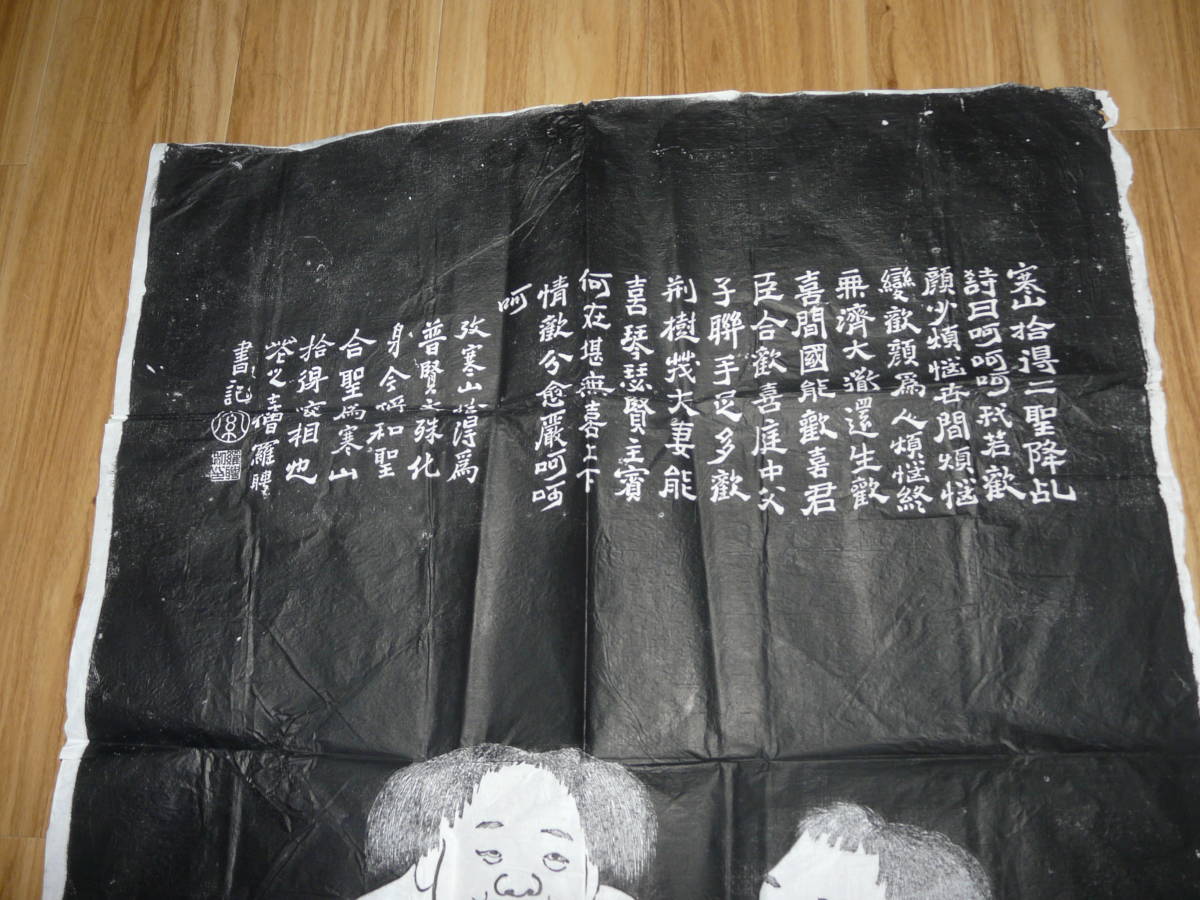 寒山拾得二聖降乩
詩曰呵呵呵我若歡
顏少煩惱世間煩惱
變歡顏為人煩惱終
無濟大道還生歡
喜間國能歡喜君
臣合歡喜庭中父
子聯手足多歡
荆樹茂夫妻能
喜琴瑟賢主賓
何在堪無喜上下
情歡分愈嚴呵呵
呵
攷寒山拾得為
普賢文殊化
身今稱和聖
合聖為寒山
拾得變相也
花之寺僧羅聘
書記